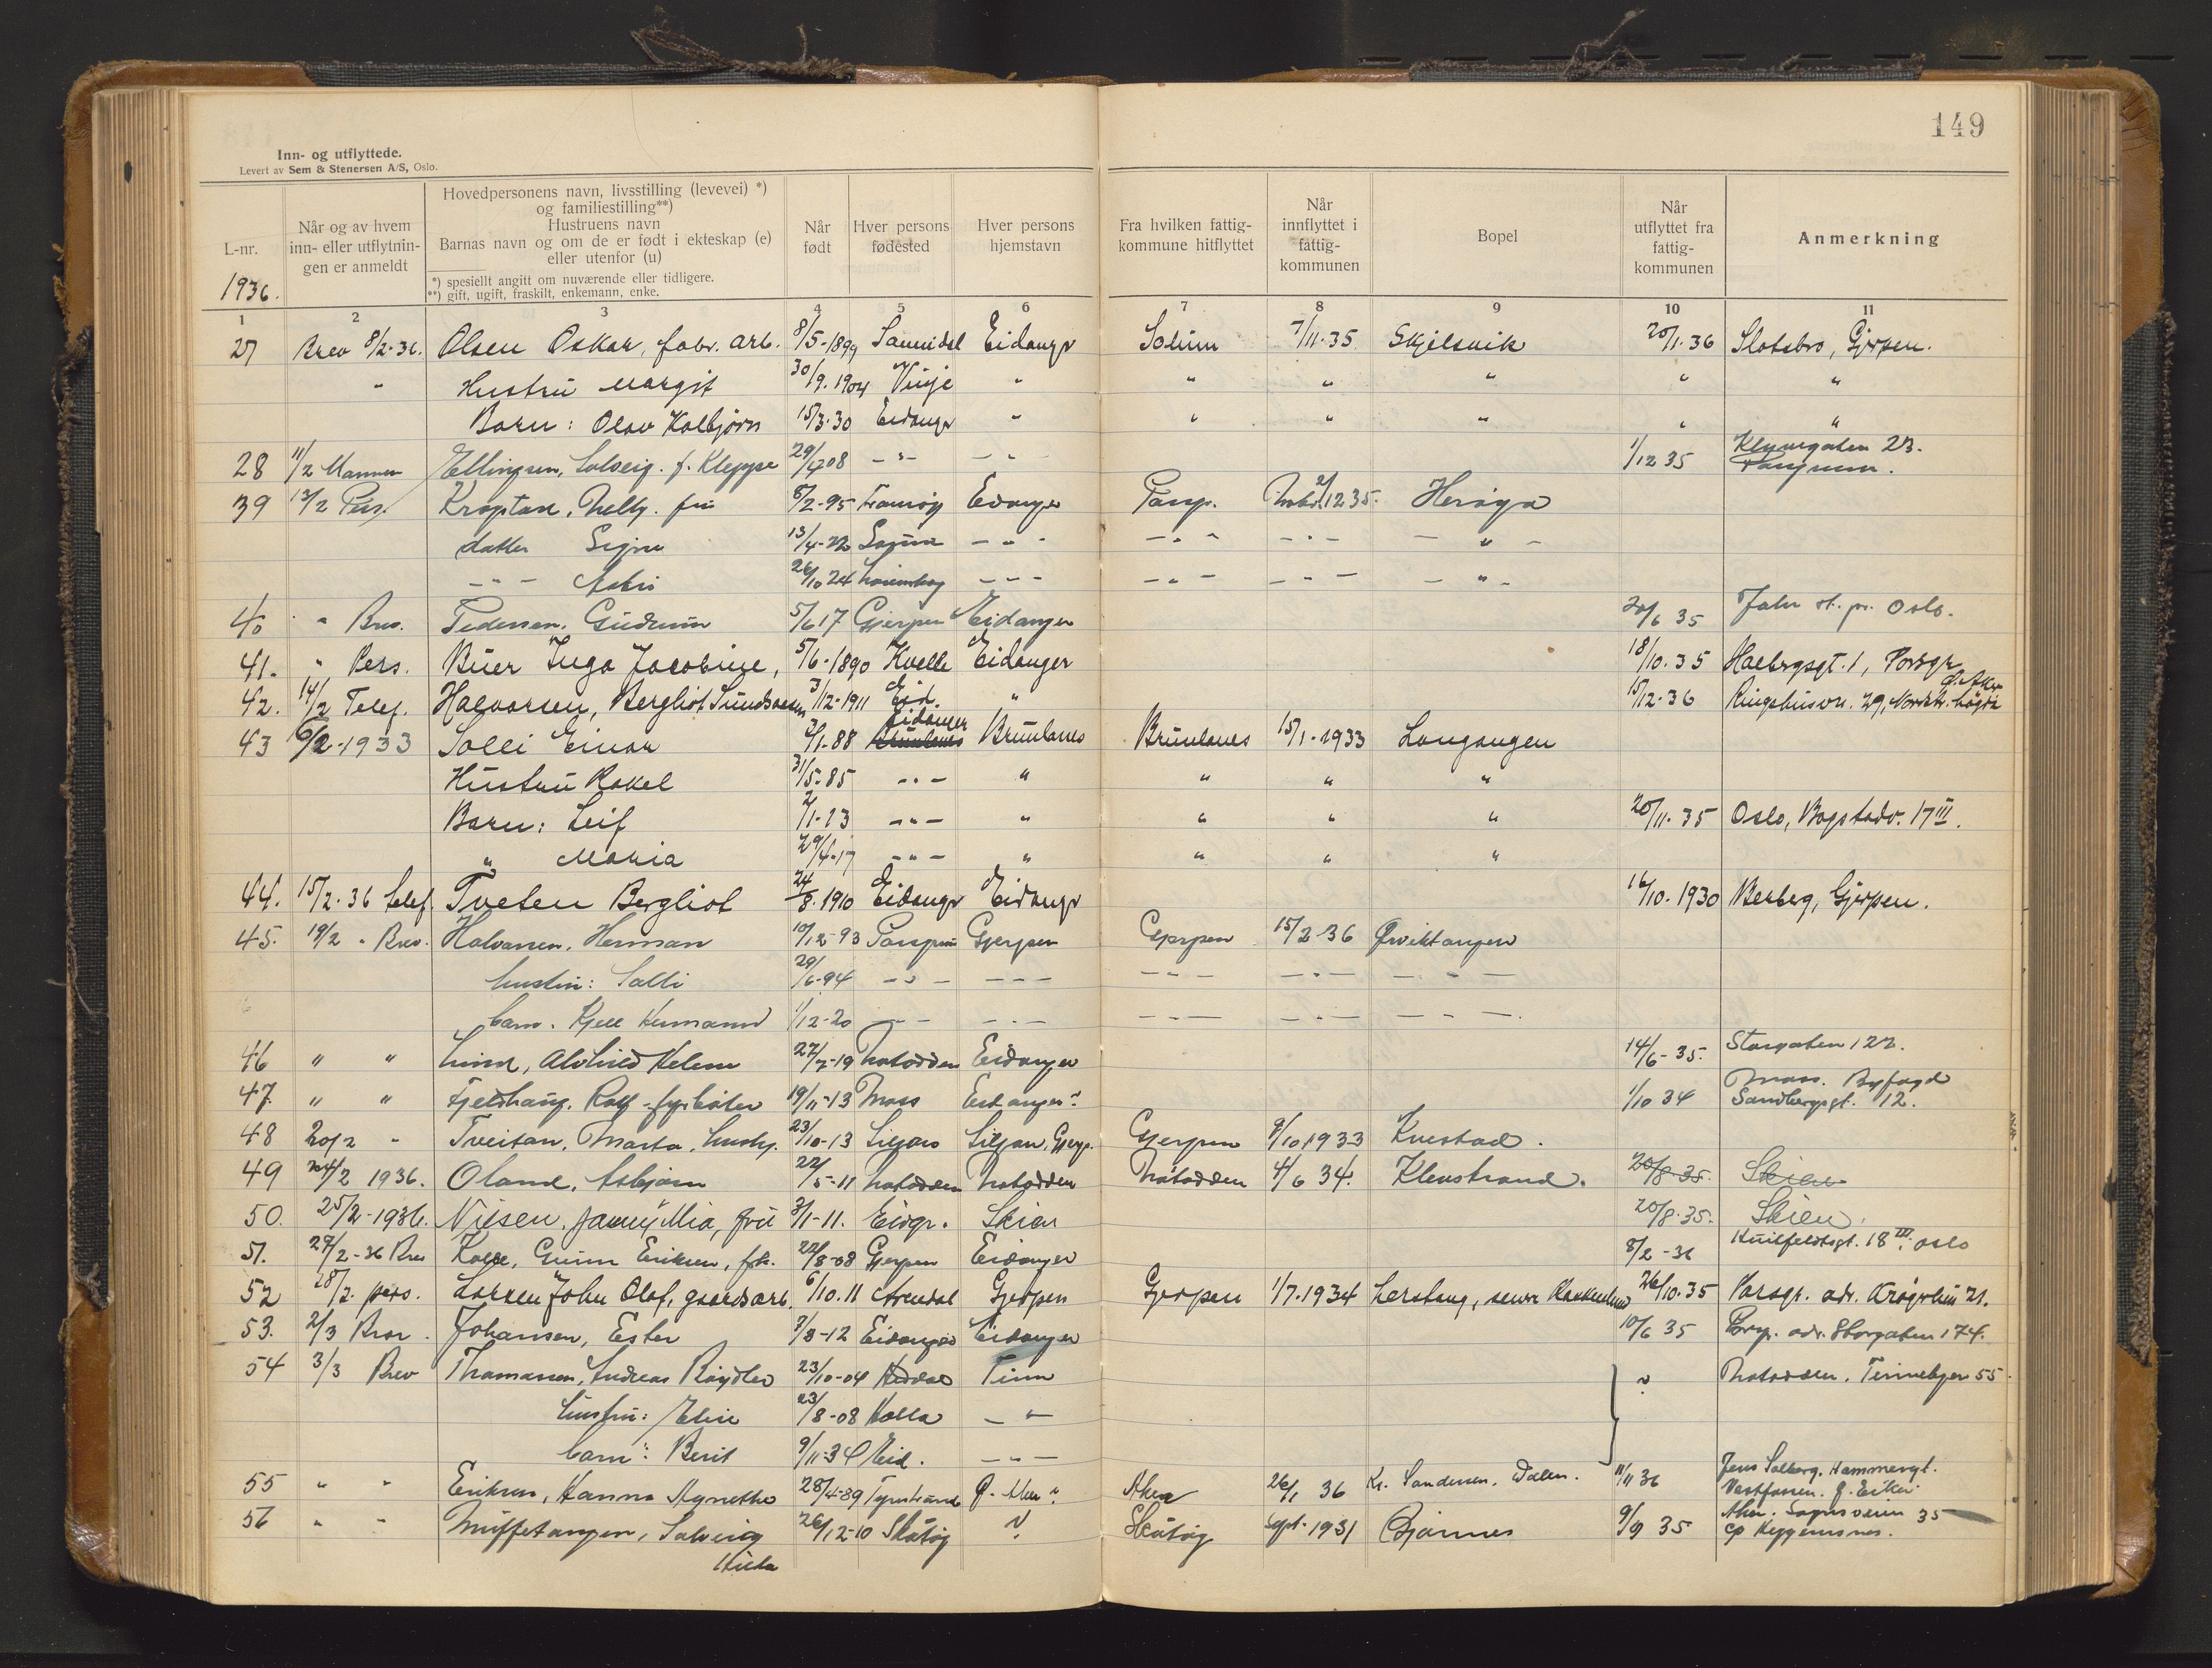 149
Inn- og utflyttede.
Levert av Sem & Stenersen A/S, Oslo.
L-nr. 1936.
Når og av hvem inn- eller utflytnin-gen er anmeldt
Hovedpersonens navn, livsstilling (levevei) *) og familiestilling**) Hustruens navn Barnas navn og om de er født i ekteskap (e) eller utenfor (u)
*) spesiellt angitt om nuværende eller tidligere.
**) gift, ugift, fraskilt, enkemann, enke.
Når født
Hver persons fødested
Hver persons hjemstavn
Fra hvilken fattig-kommune hitflyttet
Når innflyttet i fattig-kommunen
Bopel
Når utflyttet fra fattig-kommunen
Anmerkning
1 2 3 4 5 6 7 8 9 10 11
27 Brev 8/2-36. Olsen Oskar, fabr. arb. 8/5-1899 Sannidal Eidangr Solum 7/11-35 Skjelsvik 20/1-36 Slotsbro, Gjerpen.
" Hustru Margit 30/9.1904 Vinje " " " " " "
Barn: Olav Kolbjørn 15/3-30 Eidangr " " " " " "
28 11/2 Mannen Ellingsen, Solveig. f. Kleppe 29/4 08 - " - - " - 1/12 35 Klyvegaten 23. Porsgrunn.
39 13/2 Pers. Kragstan, Nelly. fru 8/2-95 Eidanger Porsgr. 2/12 35. Herøya
datter Signe 13/4-22 - " - - " - - " - - " -
- " - 26/10 24 - " - - " - - " - - " -
40 " Brev. Pedersen, Gudrun 5/6 17 Gjerpen Eidanger 20/6 35 st. pr. Oslo.
41. " Pers. Buer Inga Jacobine, 5/6-1890 Kvelle Eidanger 18/10.35 1, Porsgr.
42. 14/2 Telef. Halvorsen, Bergliot Sundsaasen 3/12-1911 Eid. " 15/12-36 Ringshusvn. 29, Nordstr. høgda Ø. Aker
43 6/2-1933 Solli Einar 2/1-88 Eidanger Brunlanes Brunlanes Brunlanes 15/1-1933 Langangen
Hustru Rakel 31/5-85 - " - " " " "
Barn: Leif 2/1-13 - " - " " " " 20/11-35 Oslo, Bogstadv. 17 III.
" Maria 29/4-17 - " - " " " "
44. 15/2-36 telef. Tveten Bergliot 24/8.1910 Eidangr Eidangr 16/10.1930 Berberg, Gjerpen.
45. 19/2 " Brev. Halvorsen, Herman 10/12-93 Porsgrunn Gjerpen Gjerpen 15/2-36 Ørviktangen
hustru: Solli 29/6-94 - " - - - - - - - - " - - " -
barn. Kjell Hermann 1/12-20 - - - " - - " - - " - - " -
46 " " Lund, Alvhild Helene 27/7-19 Notodden Eidanger 14/6-35. Storgaten 122.
47. " " Fjeldhaug. Rolf fyrbøter 19/11-13 Moss Eidanger? 1/10 34 Moss. Byfogd Sandbergsgt. 12.
48 20/2 " Tveitan, Marta, hush. 23/10-13 Siljan Siljan, Gjerp. Gjerpen 9/10 1933 Kvestad.
49 24/2 1936. Oland, Asbjørn 22/5-11 Notodden Notodden Notodden 4/6 34. Klevstrand. 20/8-35. Skien
50. 25/2-1936. Nilsen, Jenny Mia, frk 3/1-11. Eidgr. Skien 20/8.35. Skien.
51. 27/2-36 Brev Kolbe, Gunn Eriksen, frk. 22/8-08 Gjerpen Eidanger 8/2-36 Huitfeldtsgt. 18 III. Oslo
52 28/2. pers. Larsen John Olaf, gaardsarb. 6/10.11 Arendal Gjerpen Gjerpen 1/7.1934 Lerstang, senere 26/10.35 Porsgr. adr. 21.
53. 2/3 Brev. Johansen, Ester 7/3-12 Eidanger Eidanger 10/6 35 Porsgr. adr. Storgaten 174.
54 3/3 Brev Thomassen, Andreas 23/10-04 Heddal Tinn ? Notodden. Tinnebyen 55.
hustru: Elise 23/8-08 Holla - " -
barn: Berit 9/11-34 Eid. - " -
55 " " Eriksen, Hanna Agnethe 28/4-89 Tyristrand Ø. Aker? Aker 26/1 36 Kr. Sandersen. Dalen. 11/11 36 Jens Solberg. Hammergt. Vestfossen. Ø. Eiker
56 " " Muffetangen, Solveig Hilda 26/12-10 Skåtøy ? Skåtøy Sept. 1931 Bjørnes 9/9 35 Aker. Sognsveien 35